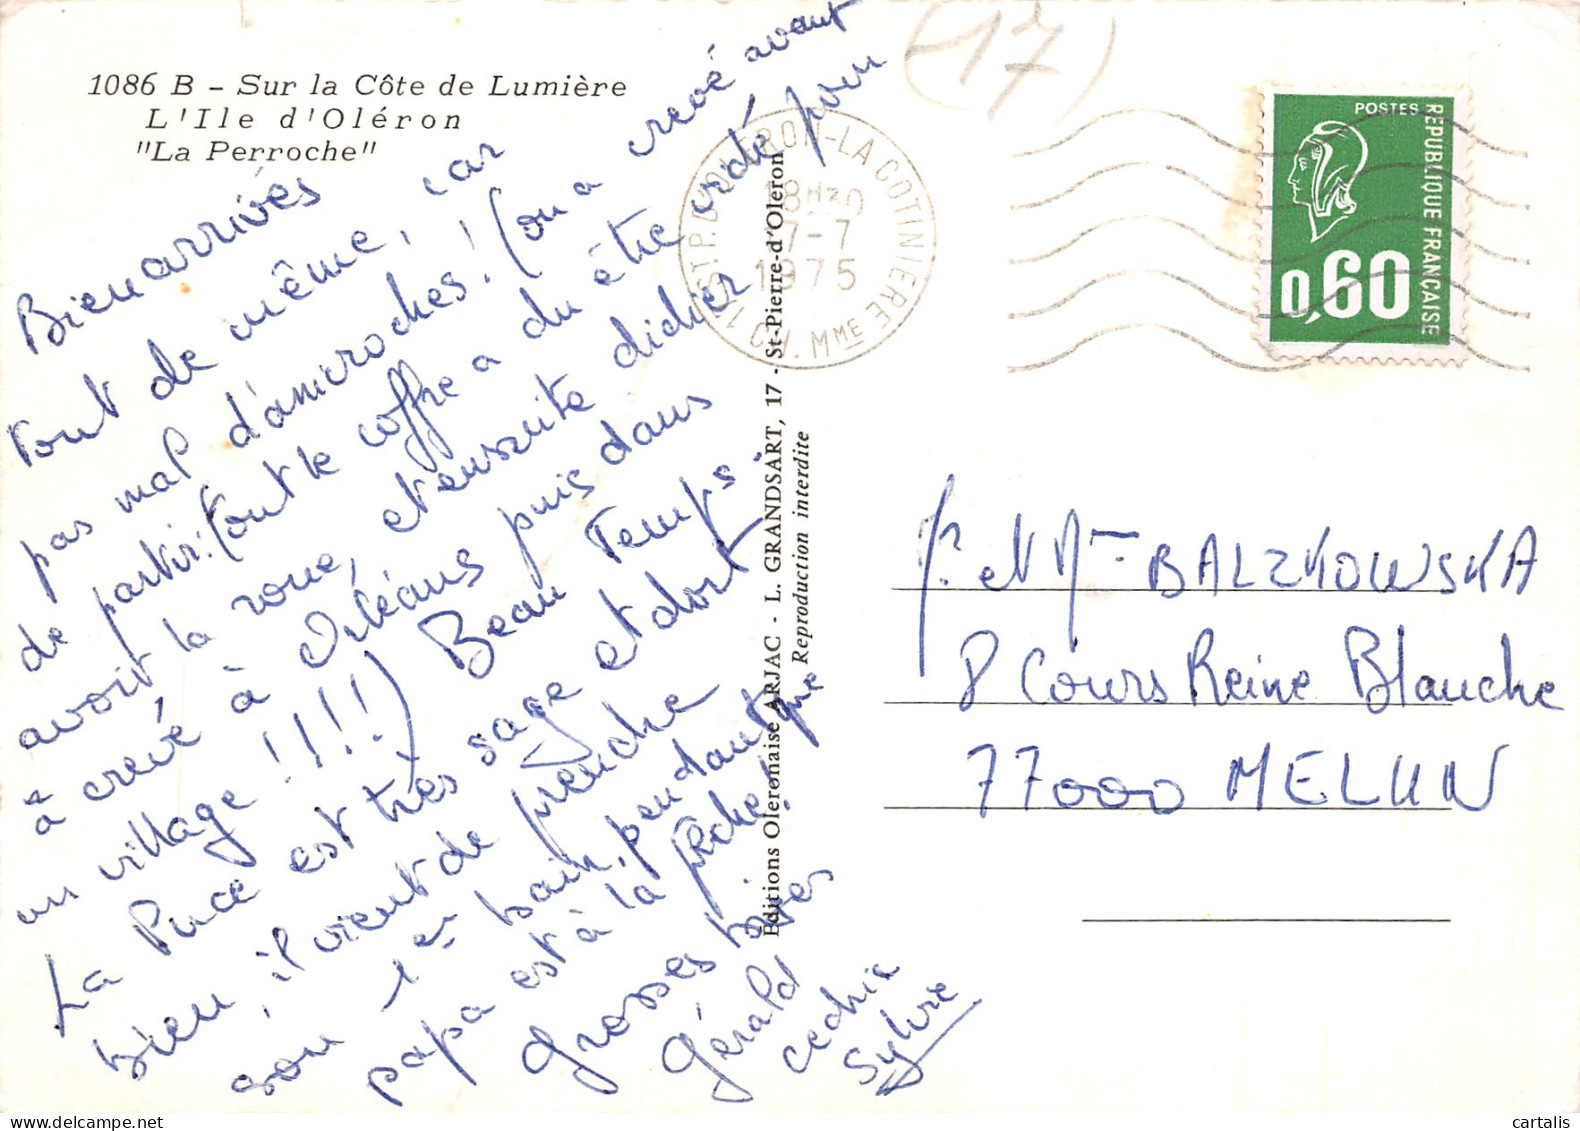 1086 B – Sur la Côte de Lumière
L'Ile d'Oléron
"La Perroche"
(17)
Bien arrivés
tout de même, car
pas mal d'anicroches! (on a crevé avant
de partir: tout le coffre a du être vidé pour
avoir la roue, et ensuite didier
a crevé à Orléans puis dans
un village !!!!) Beau temps.
La Puce est très sage et dort
bien, il vient de prendre
son 1er bain, pendant que
papa est à la pêche!
Grosses bises
Gérald
Cedric
Sylvie
Editions Oleronaise ARJAC - L. GRANDSART, 17 - St-Pierre-d'Oleron
Reproduction interdite
17 ST. P. D'OLERON-LA COTINIERE
C.H. MME
18H30
7-7
1975
POSTES
REPUBLIQUE FRANÇAISE
0,60
M. et Mme BALZKOWSKA
8 Cours Reine Blanche
77000 MELUN
cartalis